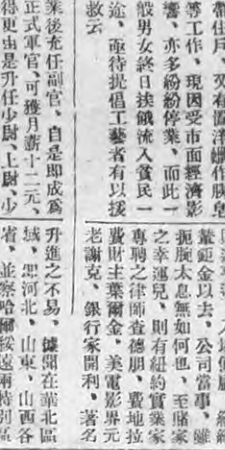 響、亦多紛紛停業、而此一
般男女終日挨餓流入貧民一
途、亟待提倡工藝者有以援
救云、
等工作、現因受市面經濟影
董鉅金以去、公司當事、雖
扼腕太息無如何也、至賭家
之幸運兒、則有紐約實業家
專聘之律師查德朋、費地拉
費財主葉爾金、美電影界元
老謝克、銀行家開利、著名
業後充任副官、自是即成爲
正式軍官、可獲月薪十二元、
得更由是升任少尉、上尉、少
升進之不易、據聞在華北區
域、如河北、山東、山西各
省、並察哈爾綏遠兩特別區